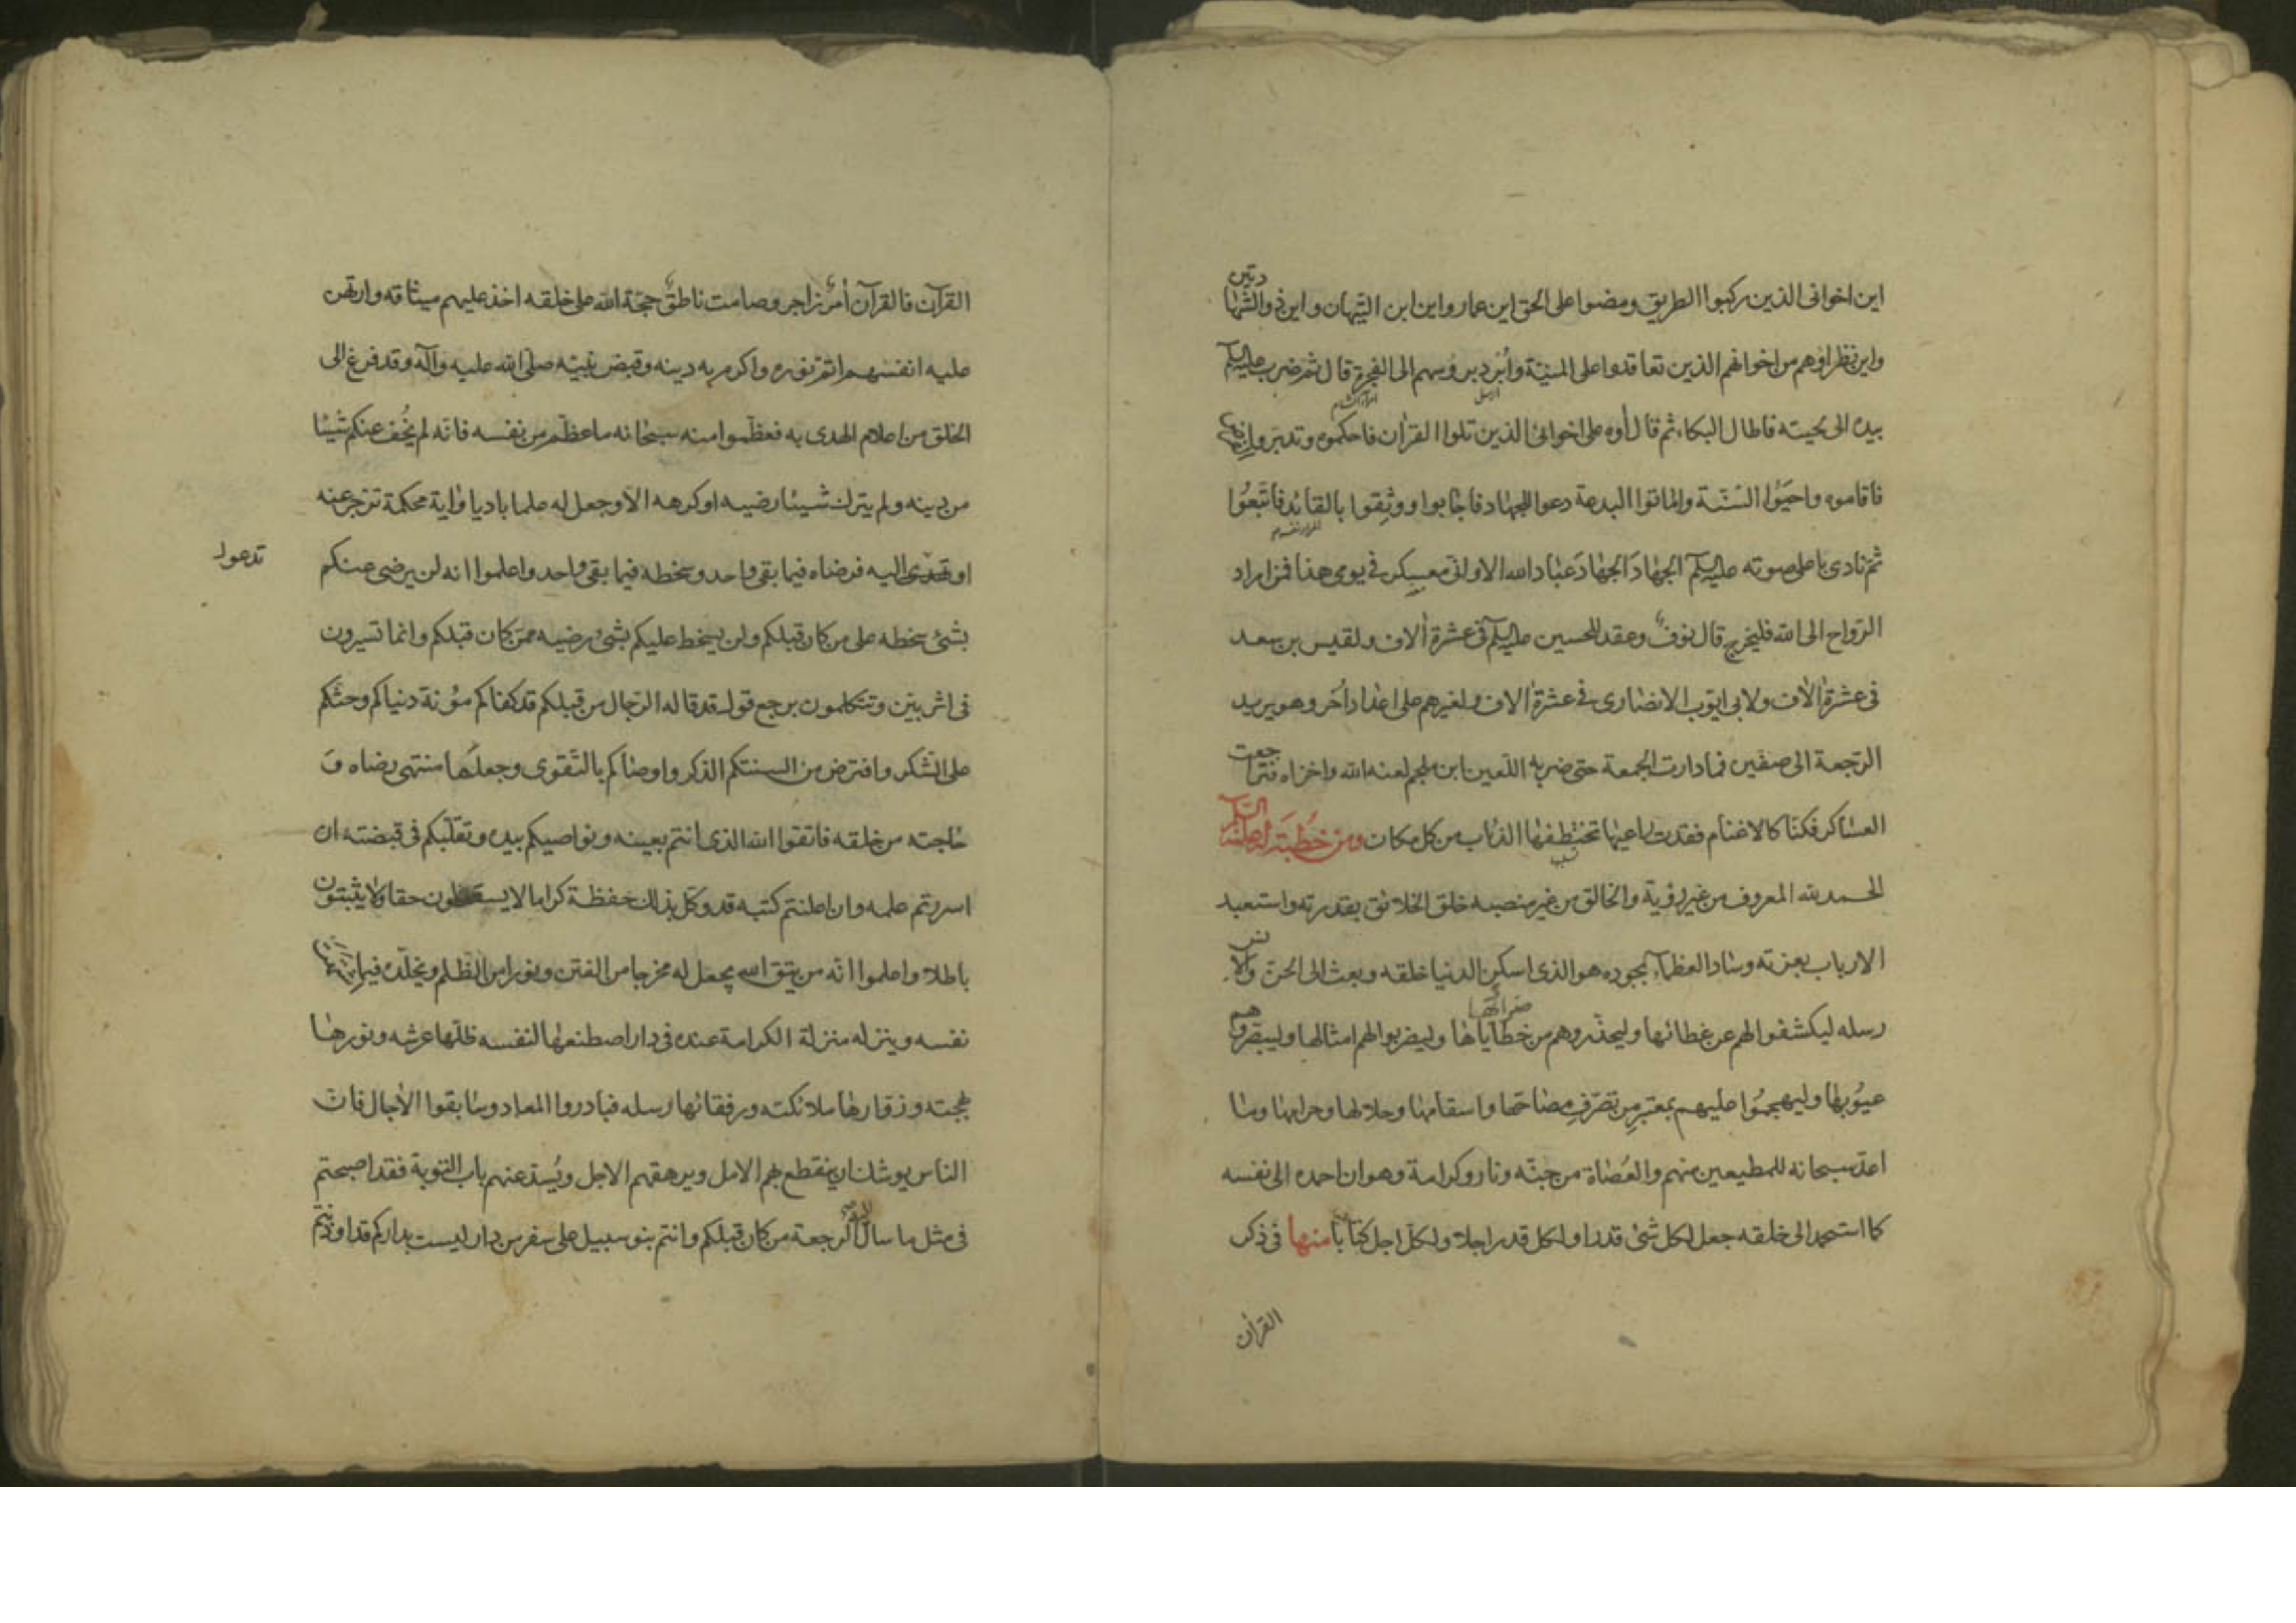 اين اخوانى الذين ركبوا الطريق ومضوا على الحق اين عمار واين ابن التيهان واين ذو الشهادتين
واين نظراؤهم من اخوانهم الذين تعاقدوا على المنيّة وأبرد برؤسهم الى الفجرة قال ثم ضرب عليه السلم
بيده الى لحيته فاطال البكاء ثم قال أوه على اخوانى الذين تلوا القرآن فاحكموه وتدبروا
فاقاموه واحيَوُا السّنّة واماتوا البدعة دعوا للجهاد فاجابوا ووثِقوا بالقائد فاتّبعُوا
ثم نادى باعلى صوته عليه السلم الجهادَ الجهادَ عباد الله الا وانى معسكر فى يومى هذا فمن اراد
الرّواح الى الله فليخرج قال نوفٌ وعقد للحسين عليه السلم فى عشرة ألاف ولقيس بن سعد
فى عشرة ألاف ولابى ايّوب الانصارى فى عشرة ألاف ولغيرهم على اعداد اُخر وهو يريد
الرّجعة الى صفّين فما دارت الجُمعة حتى ضربه اللّعين ابن ملجم لعنه الله واخزاه فتراجعت
العساكر فكنّا كالاغنام فقدت راعيها تختطفها الذئاب من كل مكان ومن خُطبَة له عليه السّلم
الحمد لله المعروف من غير رؤية والخالق من غير منصبه خلق الخلائق بقدرته واستعبد
الارباب بعزته وساد العظماء بجوده هو الذى اسكن الدنيا خلقه وبعث الى الجن والانس
رسله ليكشفوا لهم عن غطائها وليحذّروهم من خطاياها ضرائها وليضربوا لهم امثالها وليبصّروهم
عيُوبها وليهجمُوا عليهم بمعتبرٍ من تصرّفِ مصاحّها واسقامها وحلالها وحرامها وما
اعدّ سبحانه للمطيعين منهم والعُصاة من جنّه ونار وكرامة وهوان احمده الى نفسه
كما استحمد الى خلقه جعل لكل شئ قدرا ولكل قدر اجلا ولكل اجل كتابًا منها فى ذكر
القرآن
القرآن فالقرآن أمرٌ زاجر وصامت ناطقٌ حجّة الله على خلقه اخذ عليهم ميثاقه وارتهن
عليه انفسهم اتمّ نوره واكرم به دينه وقبض نبيّه صلّى الله عليه وآله وقد فرغ الى
الخلق من اعلام الهدى به فعظّموا منه سبحانه ما عظّم من نفسه فانّه لم يُخف عنكم شيئا
من دينه ولم يترك شيئا رضيه او كرهه الّا وجعل له علما باديا وأية محكمة تزجر عنه
او تدعوا اليه فرضاه فيما بقى واحد وسخطه فيما بقى واحد واعلموا انه لن يرضى عنكم
بشئ سخطه على من كان قبلكم ولن يسخط عليكم بشئ رضيه ممّن كان قبلكم وانما تسيرون
فى اثر بيّن وتتكلمون برجع قول قد قاله الرّجال من قبلكم قد كفاكم مؤنة دنياكم وحثّكم
على الشكر وافترض من السنتكم الذكر واوصاكم بالتّقوى وجعلها منتهى رضاه وَ
حاجته من خلقه فاتقوا الله الذى انتم بعينه ونواصيكم بيده وتقلّبكم فى قبضته ان
اسررتم علمه وان اعلنتم كتبه قد وكّل بذلك حفظة كراما لا يسقطون حقا ولا يثبتون
باطلا واعلموا انّه من يتّق الله يجعل له مخرجا من الفتن ونورا من الظّلم ويخلّده فيما اشتهت
نفسه وينزله منزلة الكرامة عنده فى دار اصطنعها لنفسه ظلّها عرشه ونورها
بهجته وزوّارها ملائكته ورفقائها رسله فبادروا المعاد وسابقوا الأجال فانّ
الناس يوشك ان ينقطع بهم الامل ويرهقهم الاجل ويُسدّ عنهم باب التّوبة فقد اصبحتم
فى مثل ما سال اليه الرجعة من كان قبلكم وانتم بنو سبيل على سفر من دار ليست بداركم قد اوذنتم
تدعوا